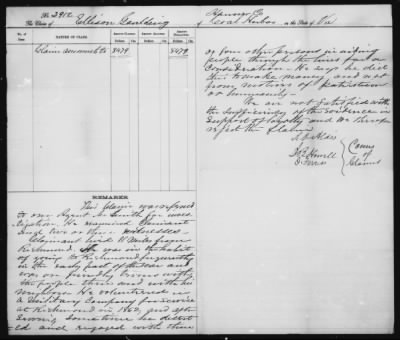 No. 2912 Hanover Co
The Claim of Ellison Gaulding of Coal Harbor in the State of Va
No. of Item NATURE OF CLAIM. AMOUNT CLAIMED. AMOUNT ALLOWED. AMOUNT DISALLOWED.
Dollars. Cts. Dollars. Cts. Dollars. Cts.
Claim amounts to 3479 3479
REMARKS.
This Claim was referred
to our Agent Mr Smith for investigation. He examined Claimant
and two or three witnesses.
Claimant lived 11 miles from
Richmond. He was in the habit
of going to Richmond frequently
in the early part of the war and
was on friendly terms with
the people there and with his
neighbors. He volunteered in
a Military Company for service
at Richmond in 1862, and after
serving sometime he deserted
and engaged with three
or four other persons in aiding
people through the lines for a
Consideration. He says he did
this to make money, and not
from motives of patriotism
or humanity.
We are not satisfied with
the sufficiency of the evidence in
support of loyalty and we therefore
reject the Claim
A. O. Aldis
J. B. Howell
O. Ferriss
Comrs
of
Claims